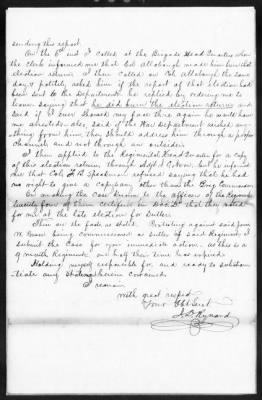 sending this report.
On the 6th inst I called at the Brigade Head Quarters when
the Clerk informed me that Col Albaugh made him burn that
election return. I then called on Col Albaugh the same
day & politely asked him if the report of that election had
been sent to the Department. he replied by ordering me to
leave: saying that he did burn the election returns and
said if I ever showed my face there again he would have
me arrested. also, said if the War Department wished any
thing from him they should address him through a proper
channel; and not through an outsider.
I then applied to the Regimental Head Quarters for a copy
of this election return through but he informed
me that Col F. B. Speakman refused saying that he had
no right to give a copy to any other than the Brig Commander
On making the case known to the officers of the Regiment
twenty four of them certified in that they voted
for me at the late election for Sutler.
These are the facts as stated. Protesting against said
being commissioned as sutler of said Regiment I
submit the case for your immediate action. As this is a
9 month Regiment and half their time has expired.
Holding myself responsible for and ready to substan
tiate any Statement herein contained.
I remain
with great respect
Your Obt Servt